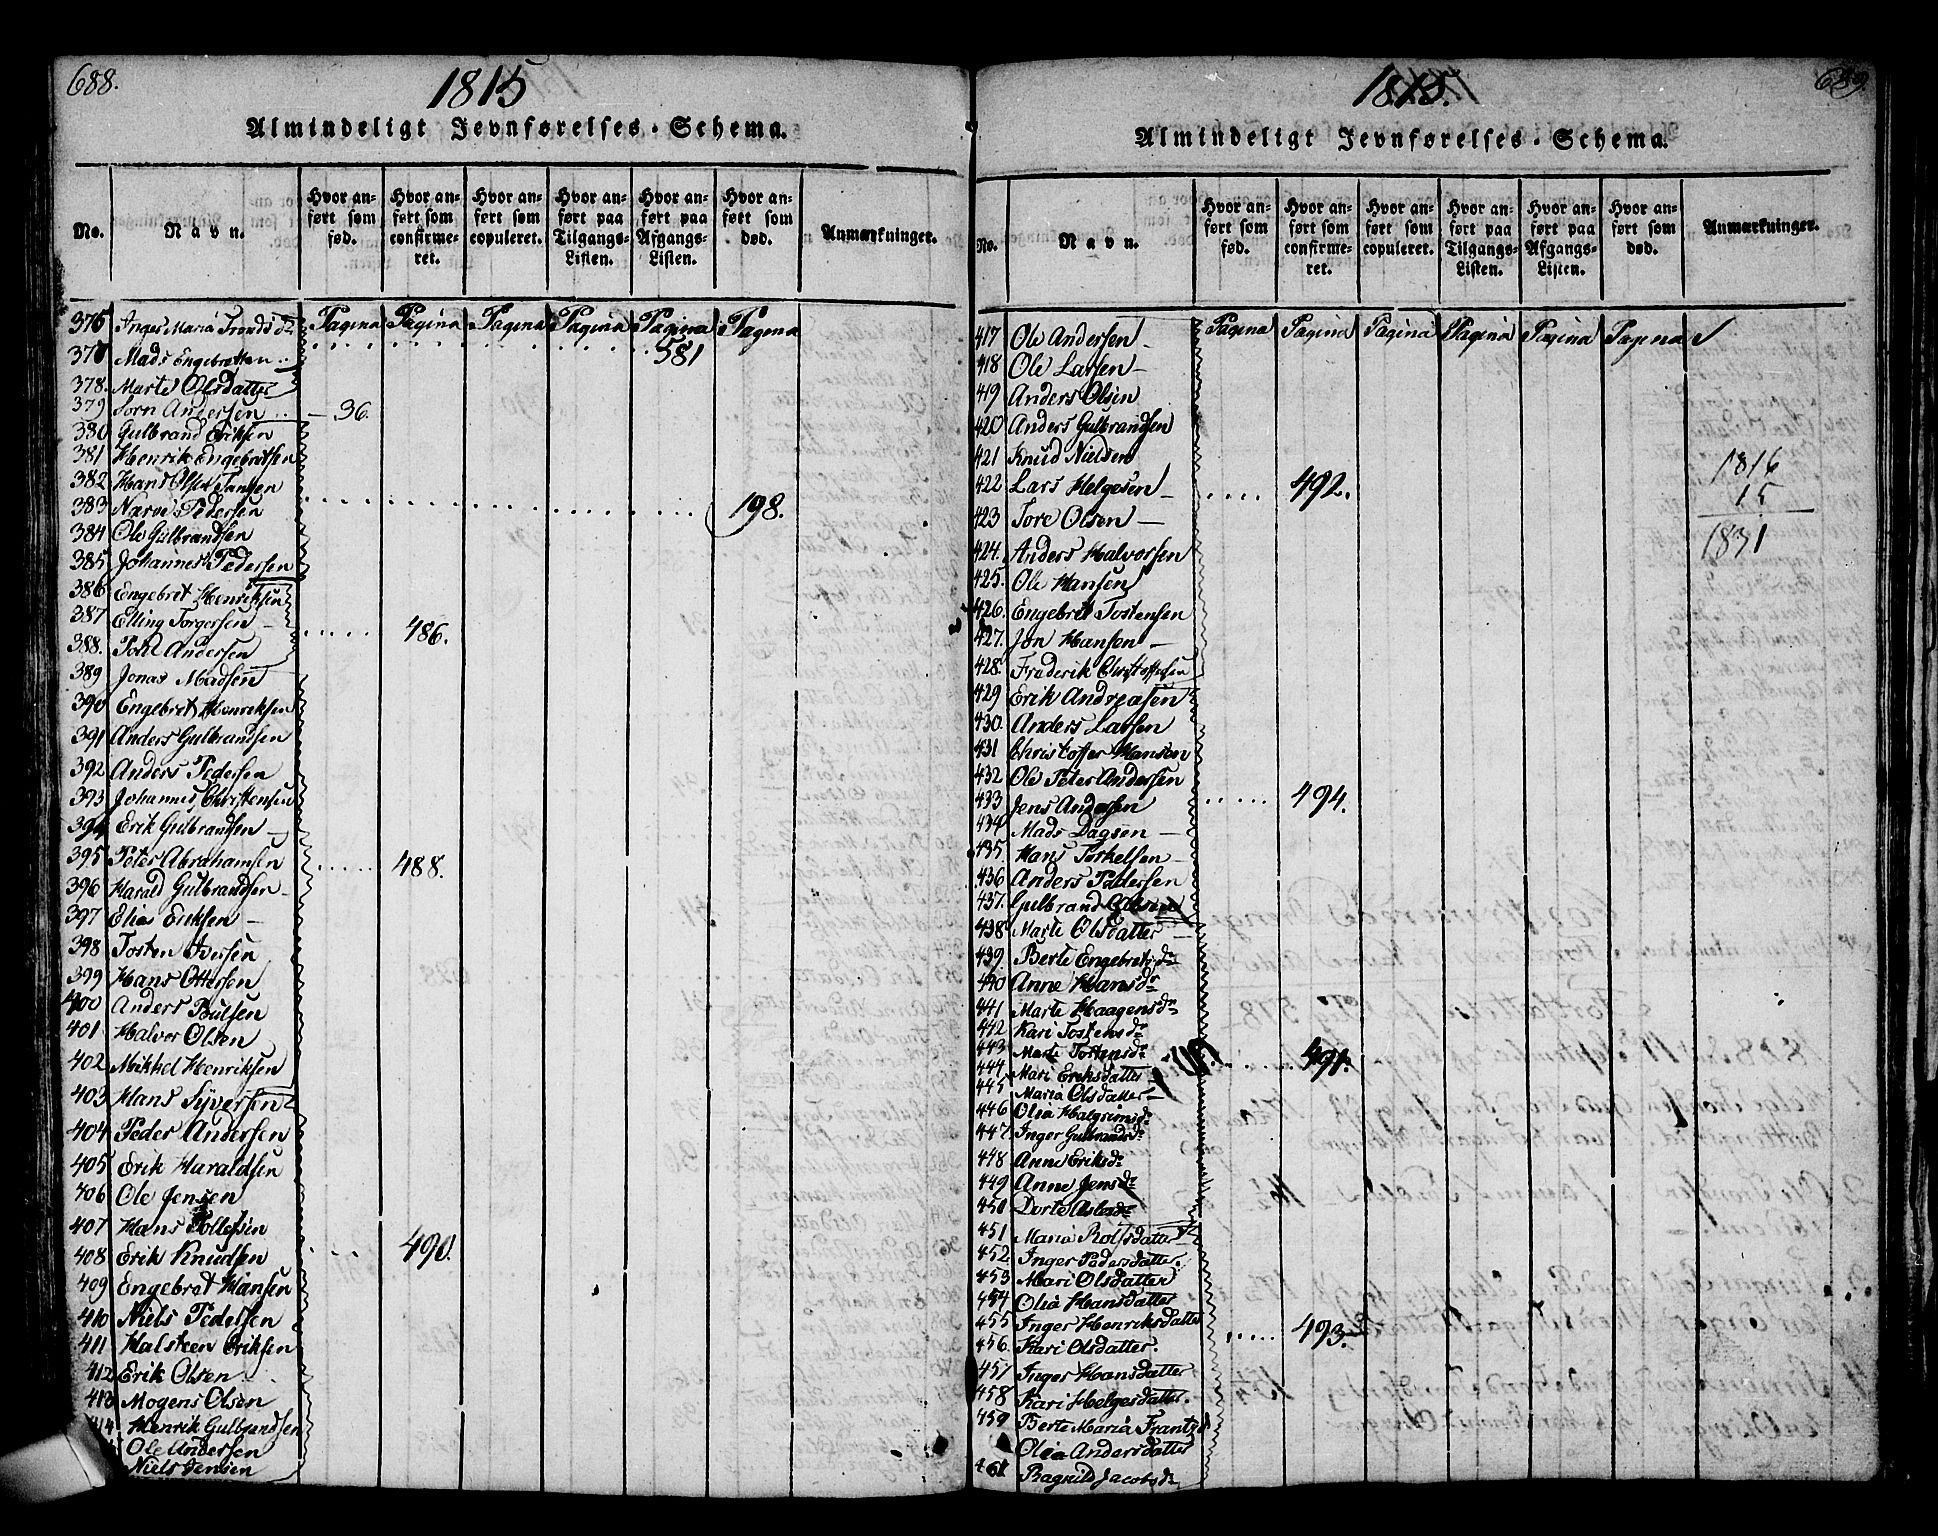 688.
1815
Almindeligt Jevnførelses-Schema.
No. Navn. Hvor anført som fød. Hvor anført som confirmeret. Hvor anført som copuleret. Hvor anført paa Tilgangs-Listen. Hvor anført paa Afgangs-Listen. Hvor anfett som død. Anmærkninger.
376 Inger Maria Tronds dr Pagina Pagina Pagina Pagina Pagina Pagina
377 Mads Engebretsen 581
378. Marte Olsdatter
379 Jorn Andersen 36.
380 Gulbrand Eriksen
381 Henrik Engebretsen
382 Hans Olsen
383 Narve Pedersen 198.
384 Ole Gulbrandsen
385 Johannes Pedersen
386 Engebret Henriksen
387 Elling Torgersen 486.
388. Poul Andersen
389 Jonas Madsen
390 Engebret Henriksen
391 Anders Gulbrandsen
392 Anders Pedersen
393 Johannes Christensen
394 Erik Gulbrandsen
395 Peter Abrahamsen 488.
396 Harald Gulbrandsen
397 Elias Eriksen
398 Tosten Iversen
399 Hans Ottersen
400 Anders Poulsen
401 Halvor Olsen
402 Mikkel Henriksen
403 Hans Syversen
404 Peder Andersen
405 Erik Haraldsen
406 Ole Jensen
407 Hans Tollefsen
408 Erik Knudsen 490.
409 Engebret Hansen
410 Niels Pedersen
411 Halsteen Eriksen
412 Erik Olsen
413 Mogens Olsen
414 Henrik Gulbrandsen
Ole Andersen
Niels Jensen
689.
1815.
Almindeligt Jevnførelses-Schema.
No. Navn. Hvor anført som fød. Hvor anført som confirmeret. Hvor anført som copuleret. Hvor anført paa Tilgangs-Listen. Hvor anført paa Afgangs-Listen. Hvor anført som død. Anmærkninger.
417 Ole Andersen Pagina Pagina Pagina Pagina Pagina Pagina
418 Ole Larsen
419 Anders Olsen
420 Anders Gulbrandsen
421 Knud Nielsen 1816
422 Lars Helgesen 492. 15
423 Tore Olsen 1831
424. Anders Halvorsen
425. Ole Hansen
426. Engebret Tostensen
427. Jon Hansen
428. Frederik Christoffersen
429 Erik Andreasen
430. Anders Larsen
431 Christoffer Hansen
432. Ole Peter Andersen
433 Jens Andersen 494.
434 Mads Dagsen
435. Hans Torkelsen
436 Anders Pedersen
437. Gulbrand Olsen
438 Marte Olsdatter
439. Berte Engebretsdr
440 Anne Hansdr
441 Marte Haagensdr
442 Kari Tostensdr
443 Marte Tostensdr 491.
444 Mari Eriksdatter
445 Maria Olsdatter
446 Olia Halgrimsdr
447. Inger Gulbrandsdr
448 Anne Eriksdr
449 Anne Jensdr
450 Dorte
451 Maria Rolfsdatter
452 Inger Pedersdatter.
453 Mari Olsdatter
454 Olia Hansdatter
455 Inger Henriksdatter 493.
456. Kari Olsdatter.
457 Inger Hansdatter
458 Kari Helgesdatter.
459 Berte Maria Frantzd
Olia Andersdatter
461 Ragnild Jacobsdr